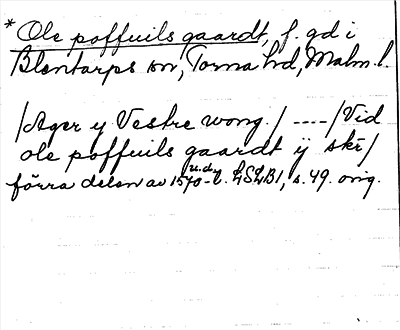 * Ole poffuils gaardt, f. gd i
Blentarps sn, Torna hd, Malm. l.
/Ager y Vestre wong./ ----/Vid
ole poffuils gaardt ÿ ski/
förra delen av 1570-t. LSLB1, s. 49. orig.